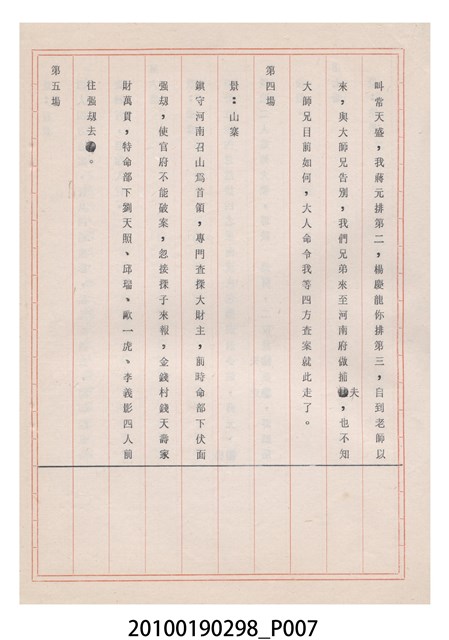 叫常天盛，我蔣元排第二，楊慶龍你排第三，自到老師以
來，與大師兄告別，我們兄弟來至河南府做捕夫，也不知
大師兄目前如何，大人命令我等四方查案就此走了。
第四場
景：山寨
鎮守河南召山爲首領，專門查探大財主，前時命部下伏面
强刼，使官府不能破案，忽接探子來報，金錢村錢天壽家
財萬貫，特命部下劉天照、邱瑞、歐一虎、李義影四人前
往强刼去。
第五場
20100190298_P007